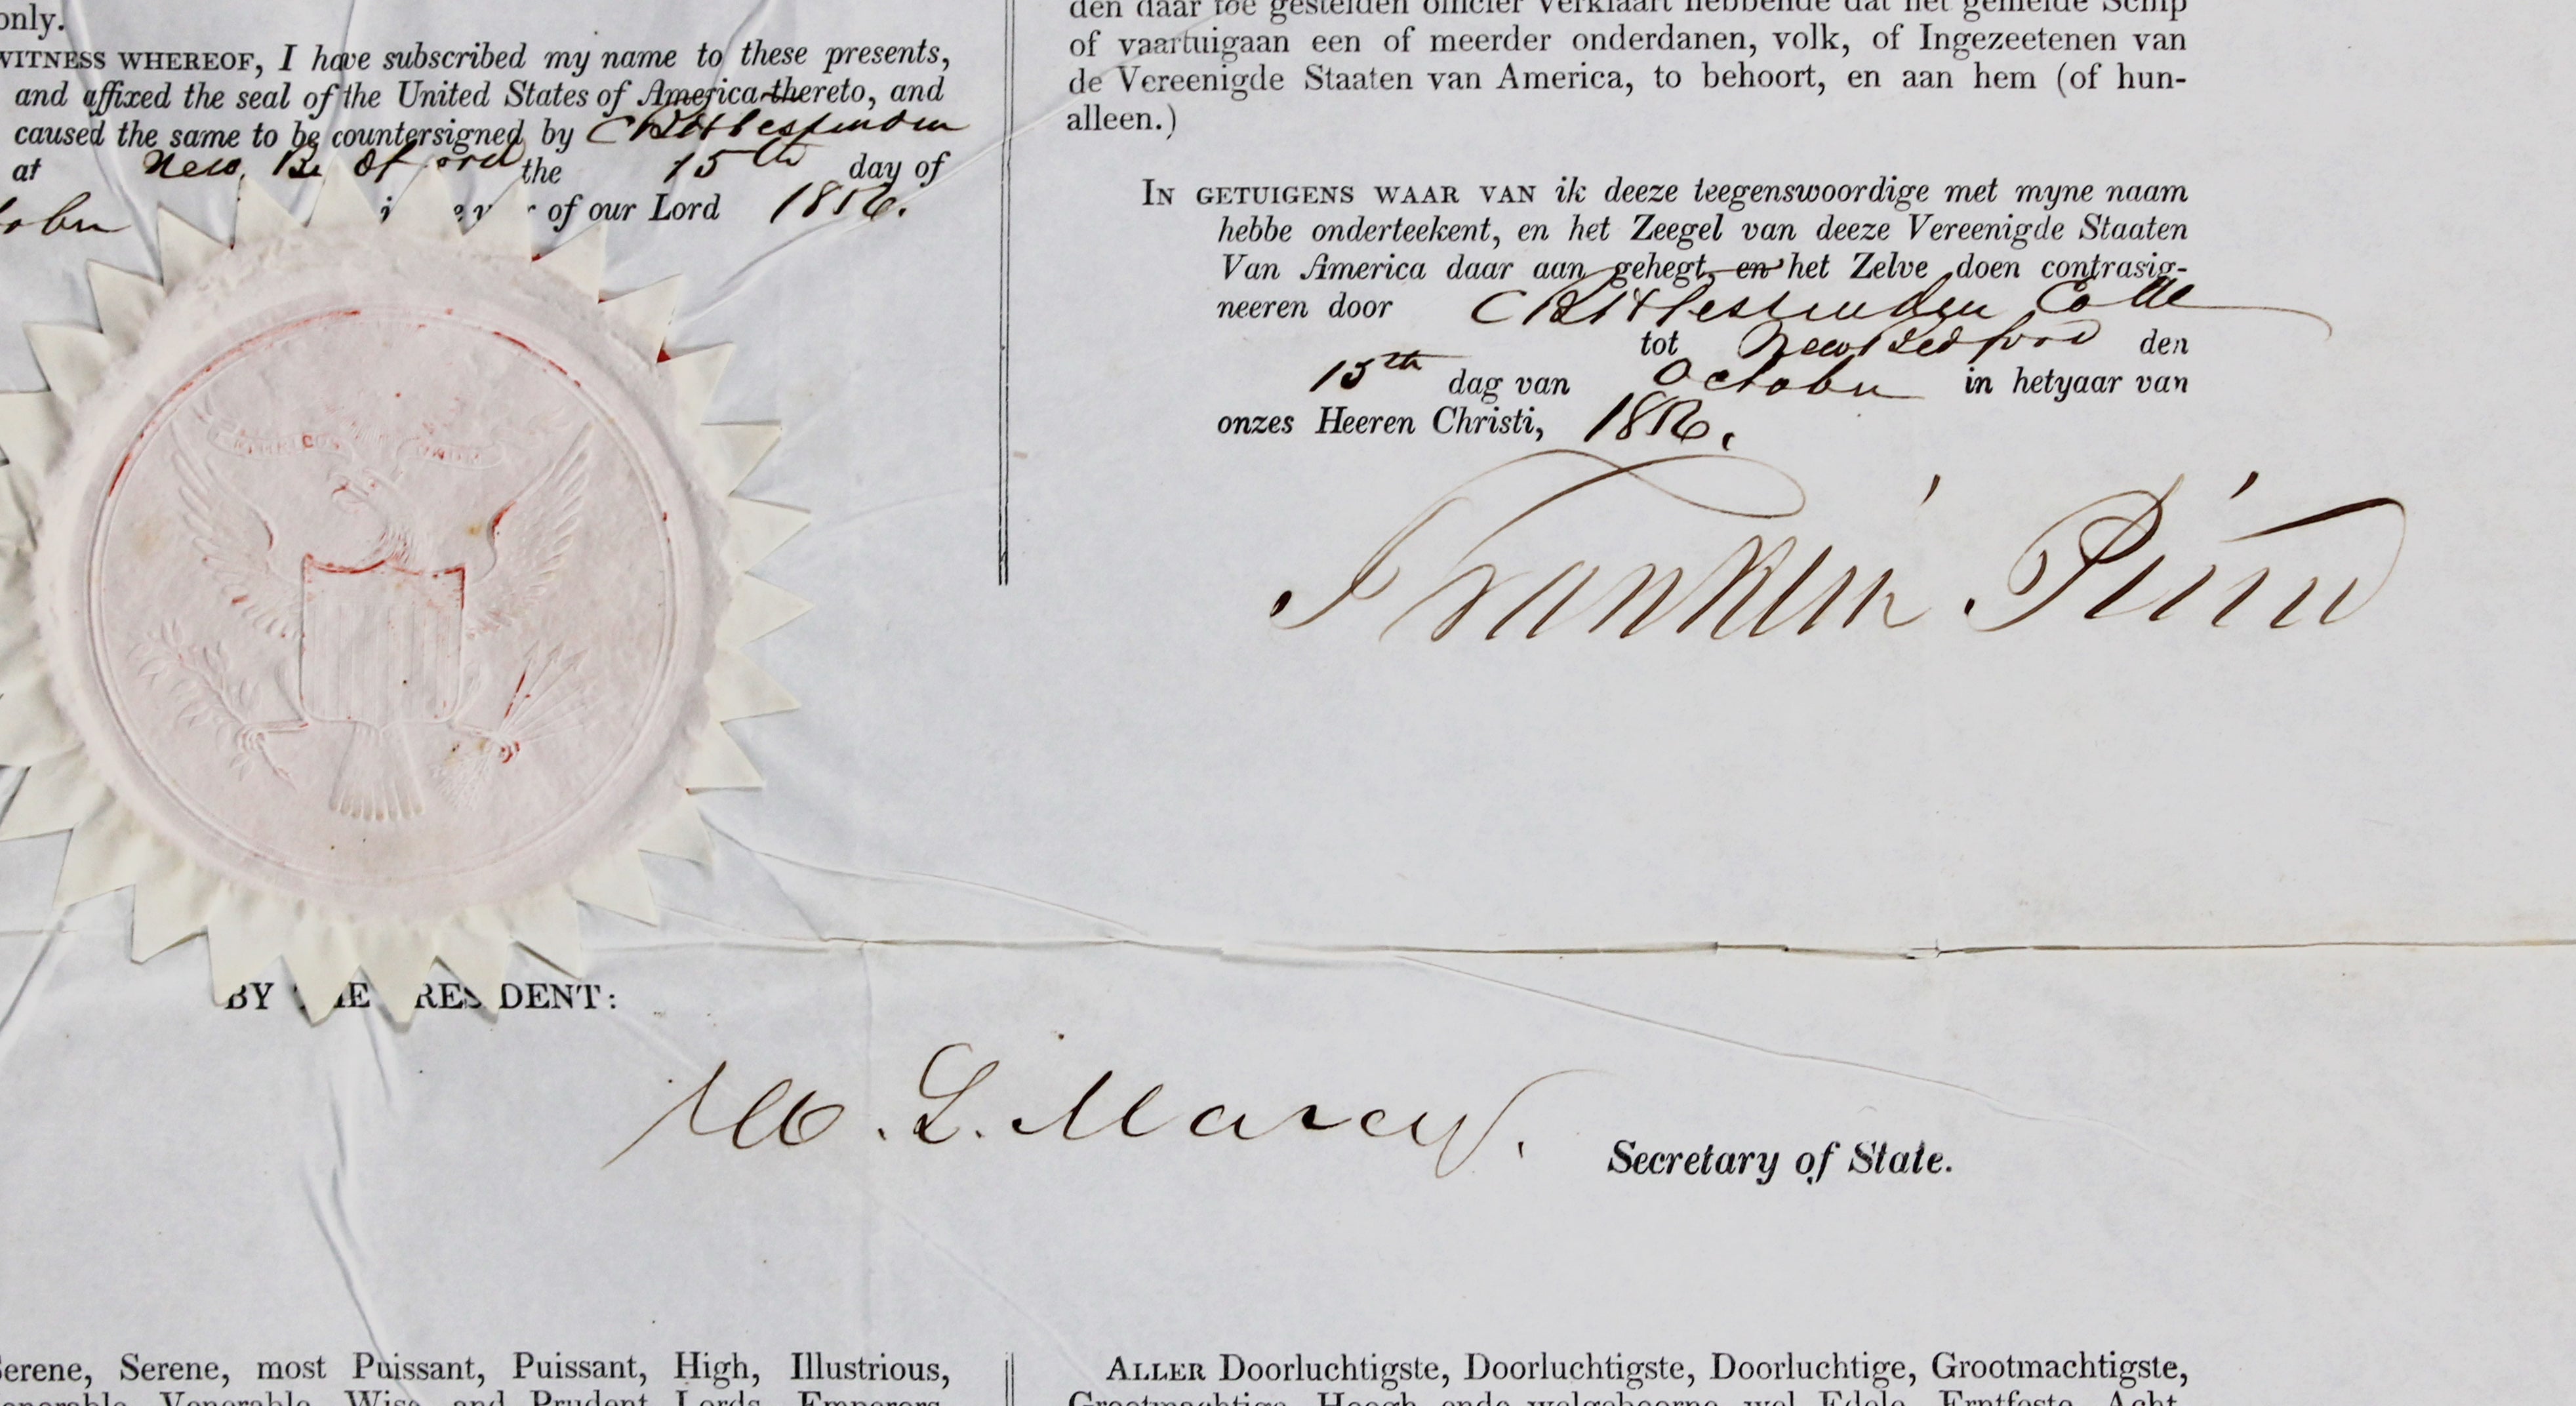 only.
WITNESS WHEREOF, I have subscribed my name to these presents,
and affixed the seal of the United States of America thereto, and
caused the same to be countersigned by C B H Fessenden
at New Bedford the 15th day of
of our Lord 1856.
den daar toe gestelden officier verklaart hebbende dat het gemelde Schip
of vaartuigaan een of meerder onderdanen, volk, of Ingezeetenen van
de Vereenigde Staaten van America, to behoort, en aan hem (of hun-
alleen.)
IN GETUIGENS WAAR VAN ik deeze teegenswoordige met myne naam
hebbe onderteekent, en het Zeegel van deeze Vereenigde Staaten
Van America daar aan gehegt, en het Zelve doen contrasig-
neeren door C B H Fessenden Colle
tot New Bedford den
15th dag van October in hetyaar van
onzes Heeren Christi, 1856.
Franklin Pierce
BY THE PRESIDENT:
W. L. Marcy.
Secretary of State.
Serene, Serene, most Puissant, Puissant, High, Illustrious,
Venerable, Wise and Prudent Lords, Emperors,
ALLER Doorluchtigste, Doorluchtigste, Doorluchtige, Grootmachtigste,
Grootmachtige, Hoogh ende welgeboorne, wel Edele, Erntfeste, Acht-